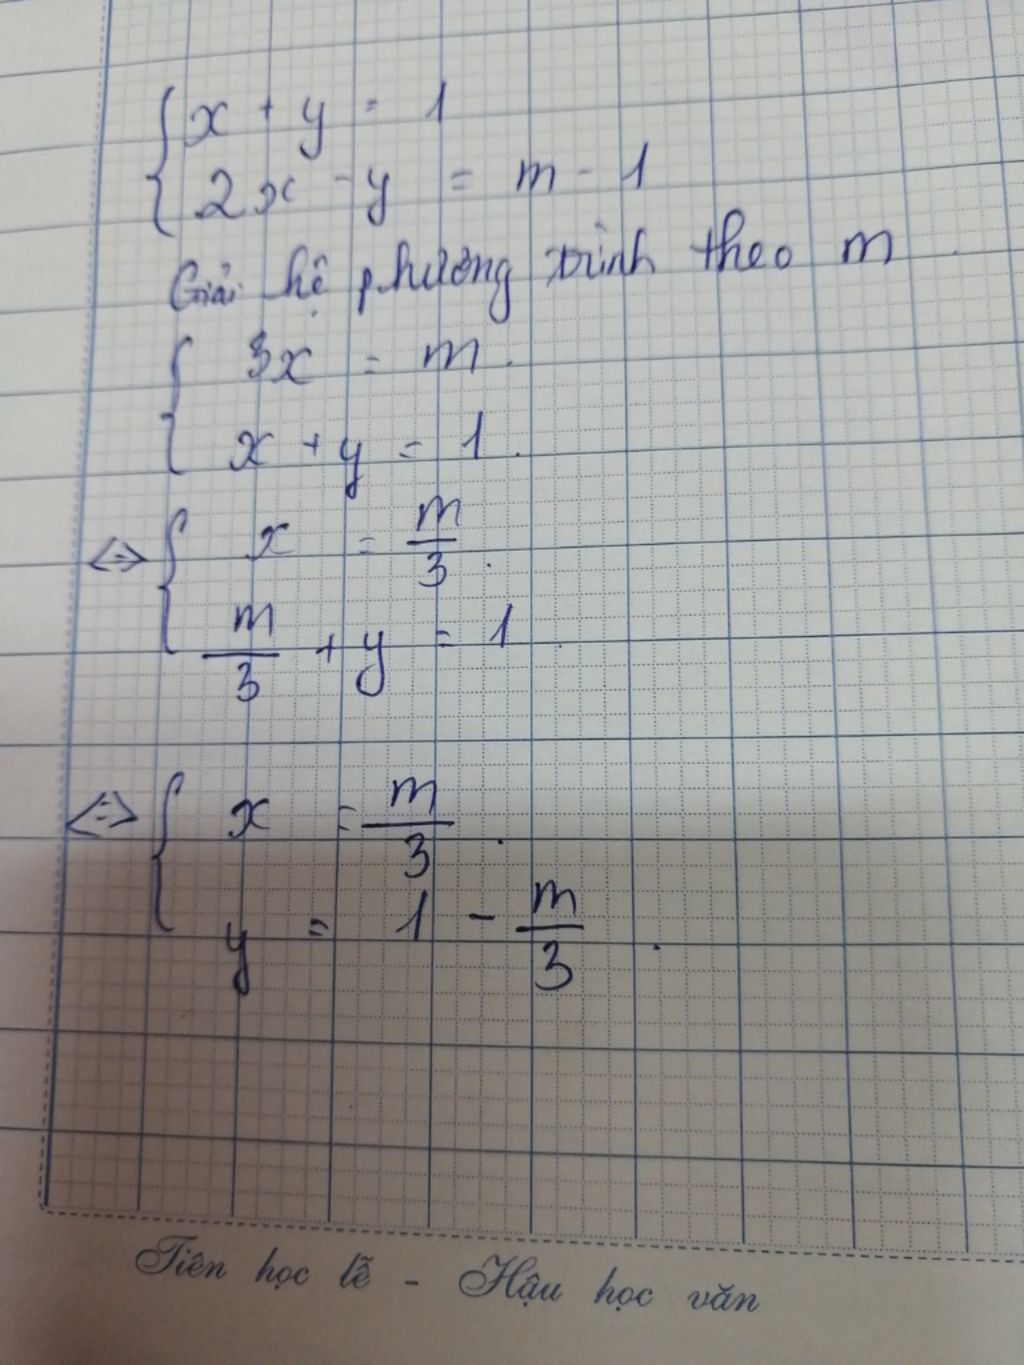 { x + y = 1
2x - y = m - 1
Giải hệ phương trình theo m.
{ 3x = m.
x + y = 1.
<=> { x = m/3.
m/3 + y = 1.
<=> { x = m/3.
y = 1 - m/3.
Tiên học lễ - Hậu học văn